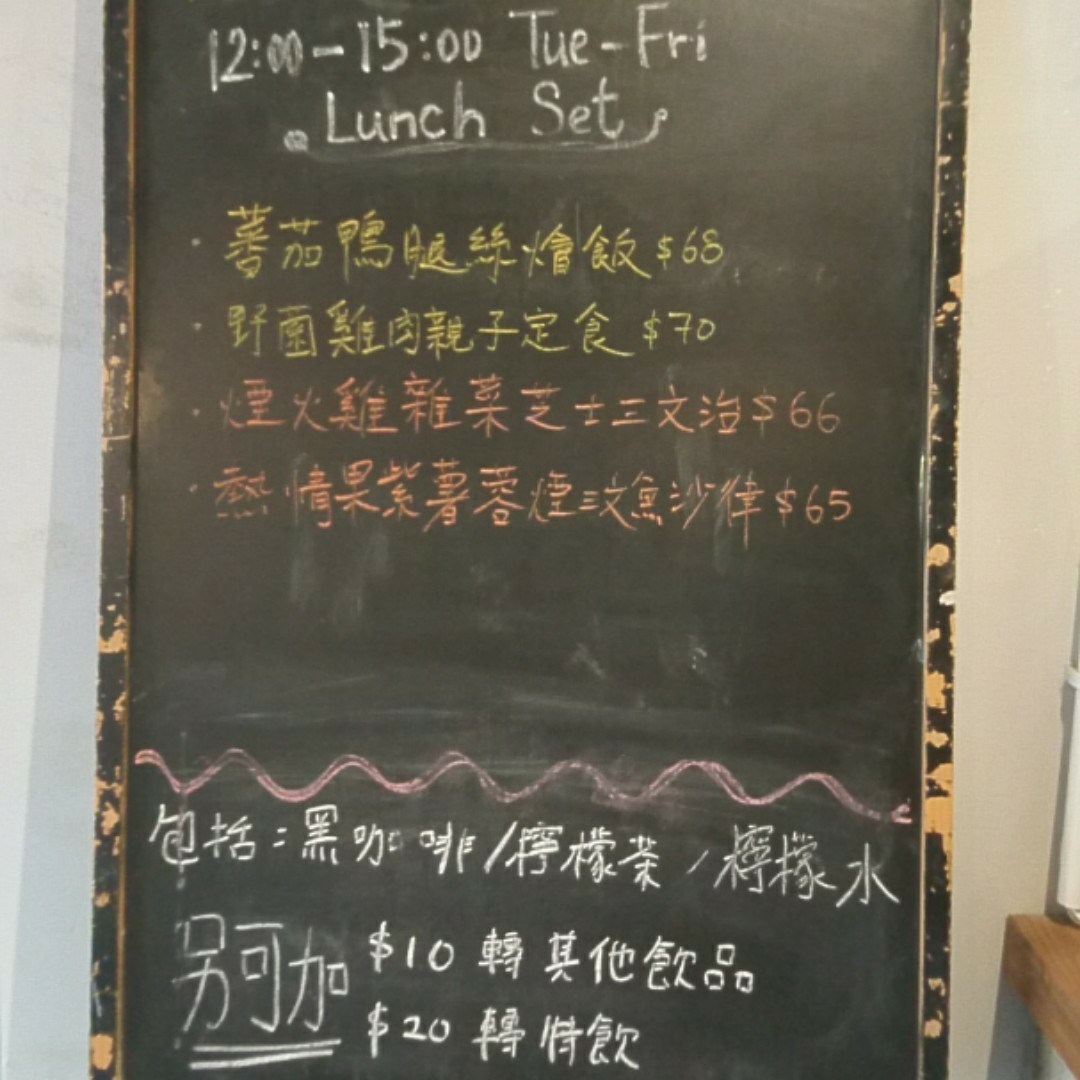 12:00-15:00 Tue-Fri
Lunch Set
· 蕃茄鴨腿絲燴飯 $68
· 野菌雞肉親子定食 $70
· 煙火雞雜菜芝士三文治 $66
· 熱情果紫薯蓉煙三文魚沙律 $65
包括:黑咖啡/檸檬茶/檸檬水
另可加 $10 轉其他飲品
$20 轉特飲